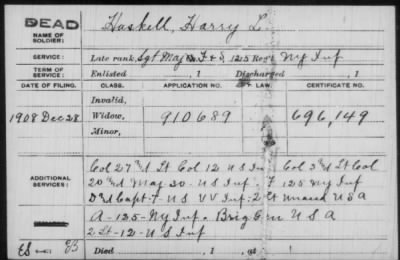 DEAD
NAME OF SOLDIER: Haskell, Harry L.
SERVICE: Late rank, Sgt Maj F & S, 125 Reg't Ny Inf
TERM OF SERVICE: Enlisted , 1 Discharged , 1
DATE OF FILING. CLASS. APPLICATION NO. LAW. CERTIFICATE NO.
Invalid,
1908 Dec 28 Widow, 910689 696,149
Minor,
ADDITIONAL SERVICES:
Col 27 Lt Col 12 U S Inf Col 3rd Lt Col
20 Maj 30 - U S Inf. F 125 Ny Inf
Capt - F - U S V V Inf - 2 Lt U S A
A - 125 - Ny Inf. Brig Gen U S A
2 Lt - 12 - U S Inf
Died , 1 , at